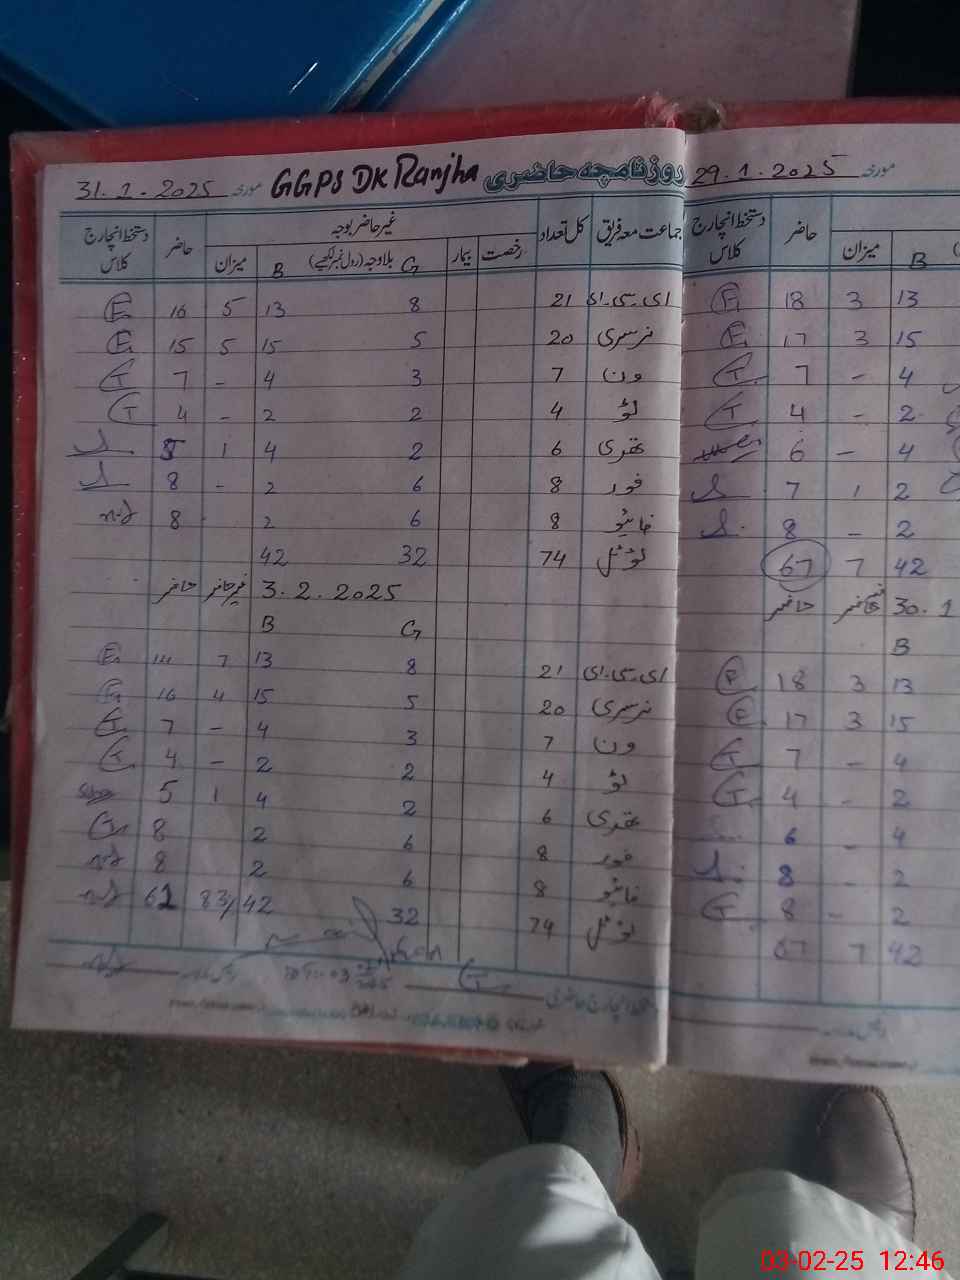 31.1.2025 مورخہ GGPS DK Ranjha روزنامچہ حاضری
جماعت معہ فریق کل تعداد غیر حاضر بوجہ حاضر دستخط انچارج کلاس
رخصت بیمار G بلاوجہ (رول نمبر لکھیے) B میزان
ای سی ای 21 8 13 5 16 E
نرسری 20 5 15 5 15 E
ون 7 3 4 - 7 T
ٹو 4 2 2 - 4 T
تھری 6 2 4 1 5
فور 8 6 2 - 8
فائیو 8 6 2 8
ٹوٹل 74 32 42
3.2.2025 غیر حاضر حاضر
G B
ای سی ای 21 8 13 7 14 E
نرسری 20 5 15 4 16 E
ون 7 3 4 - 7 T
ٹو 4 2 2 - 4 T
تھری 6 2 4 1 5
فور 8 6 2 8
فائیو 8 6 2 8
ٹوٹل 74 32 42 62
29.1.2025 مورخہ
حاضر دستخط انچارج کلاس
B میزان
13 3 18 E
15 3 17 E
4 - 7 T
2 - 4 T
4 - 6
2 1 7
2 - 8
42 7 67
30.1 حاضر
B
13 3 18
15 3 17
4 - 7 T
2 - 4 T
4 - 6
2 - 8
2 - 8 T
42 7 67
03-02-25 12:46